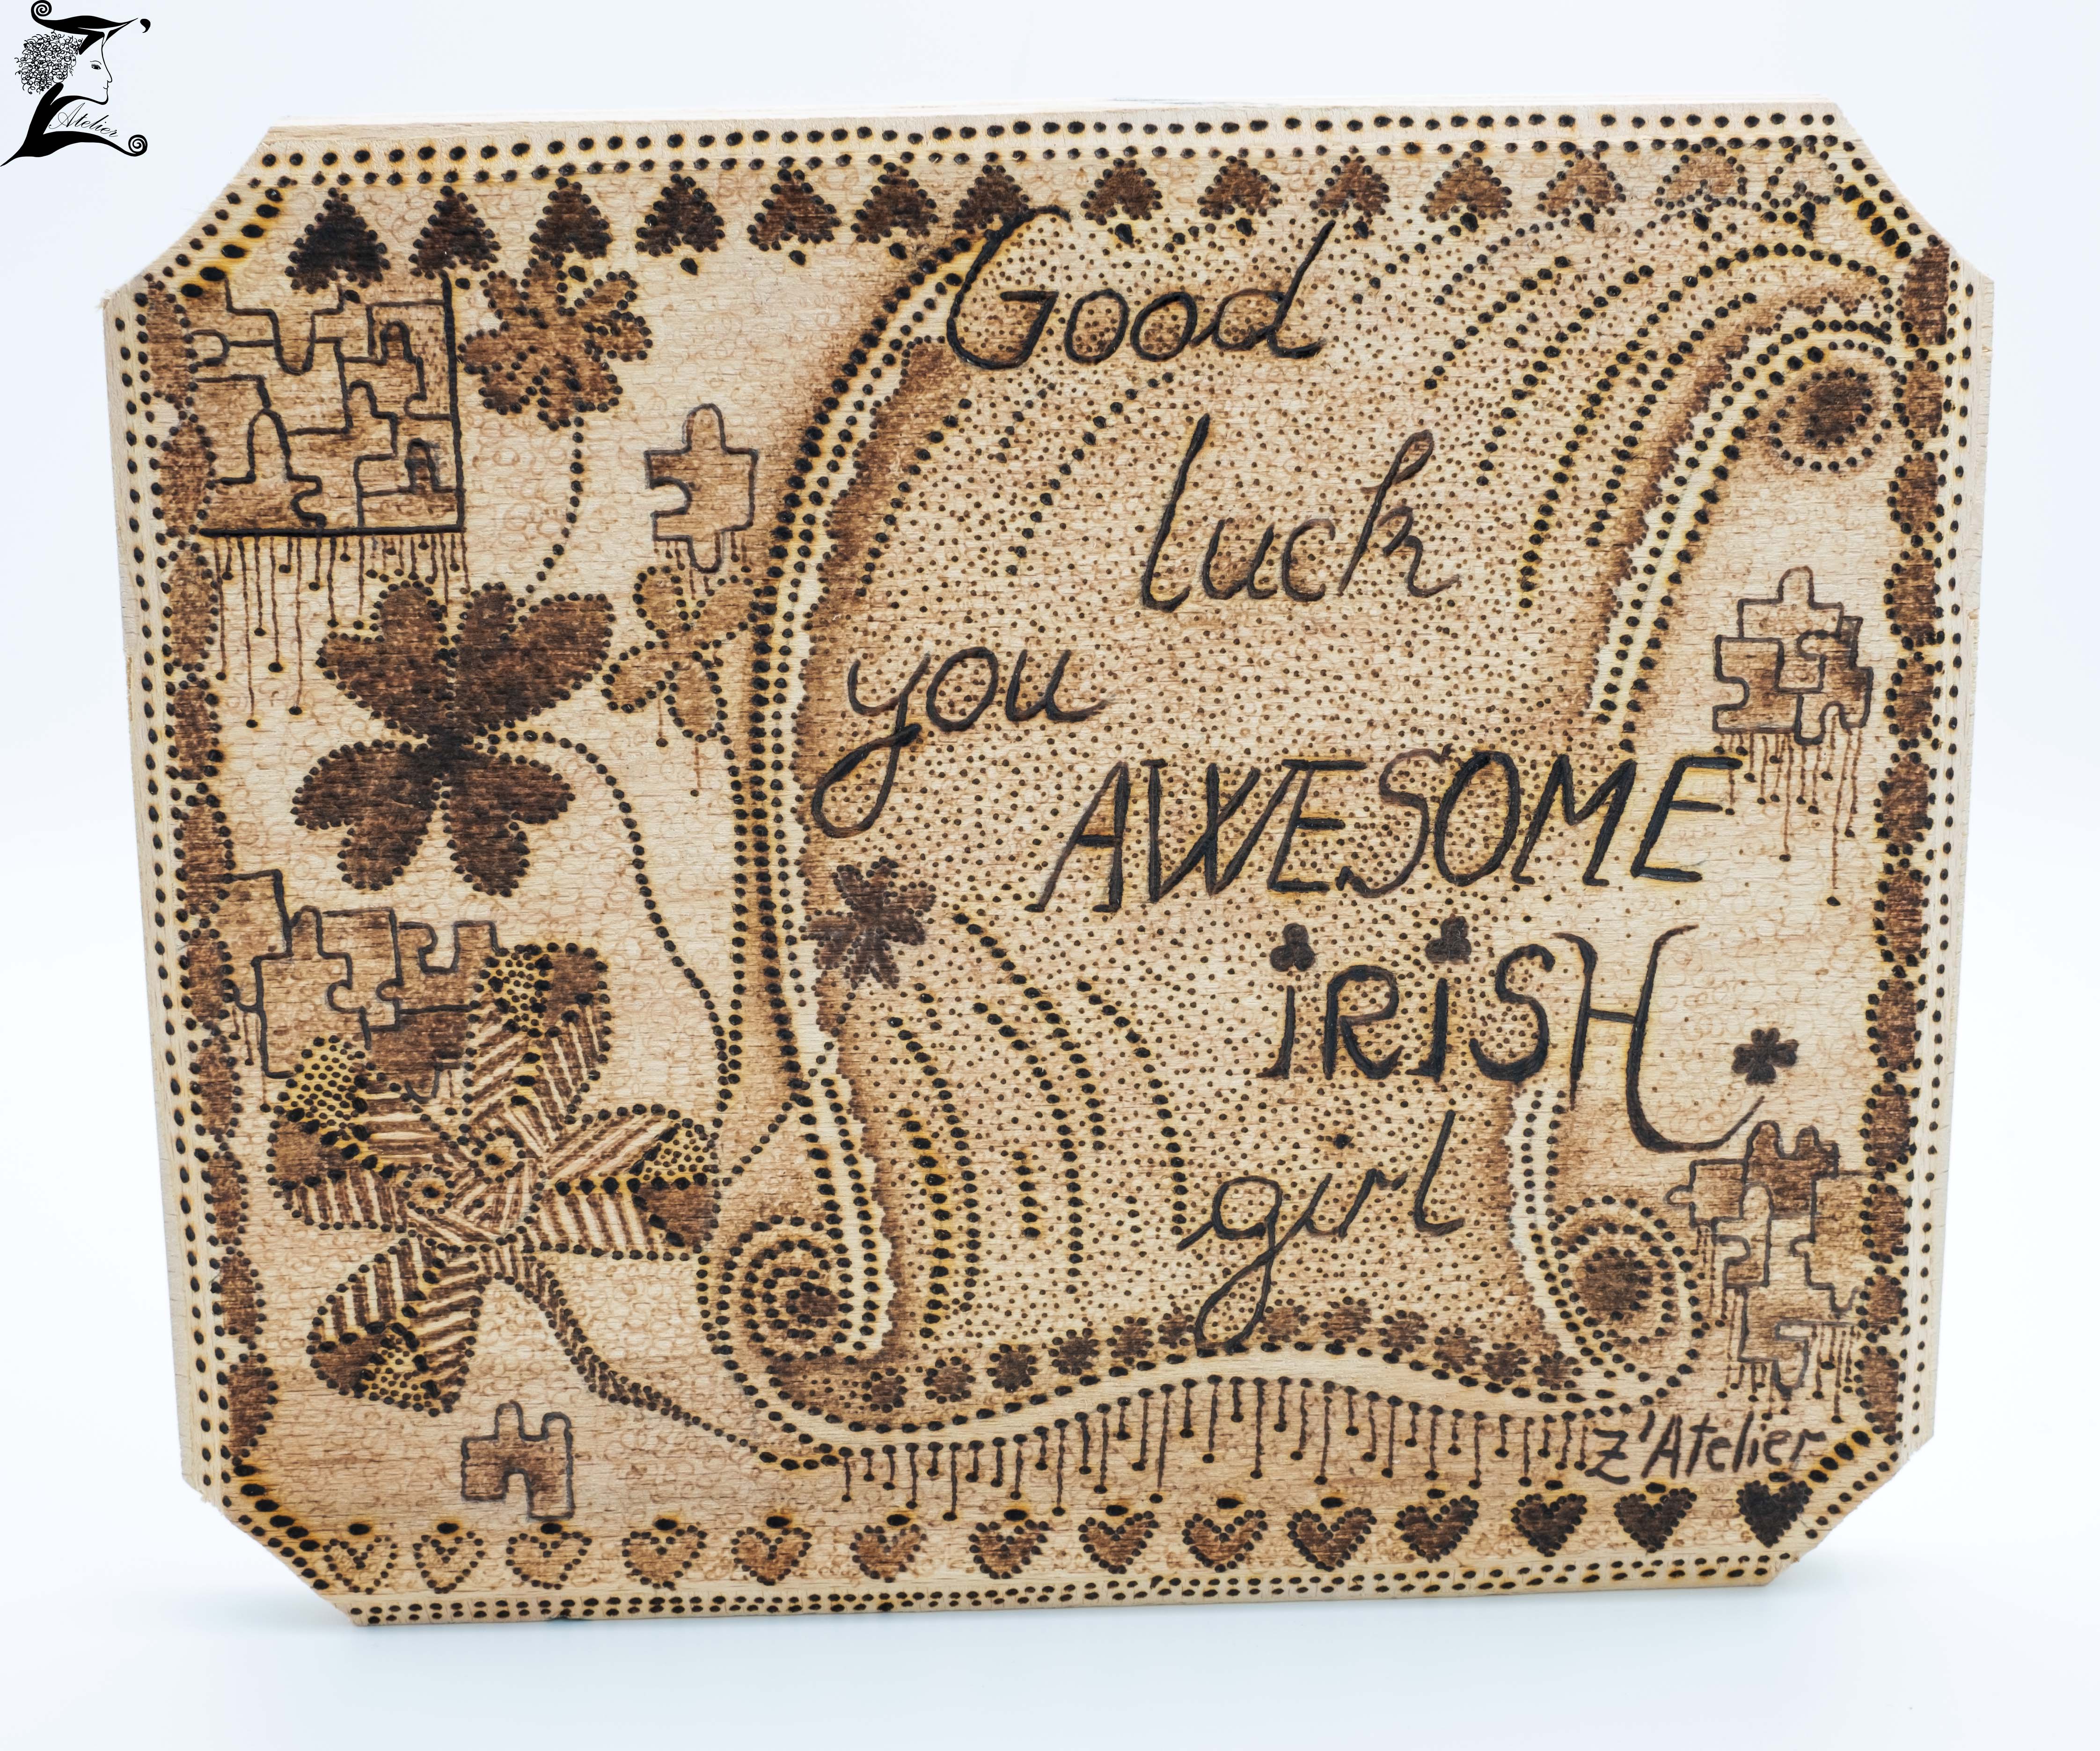 Atelier
Good
luck
you
AWESOME
iRiSH
girl
z'Atelier